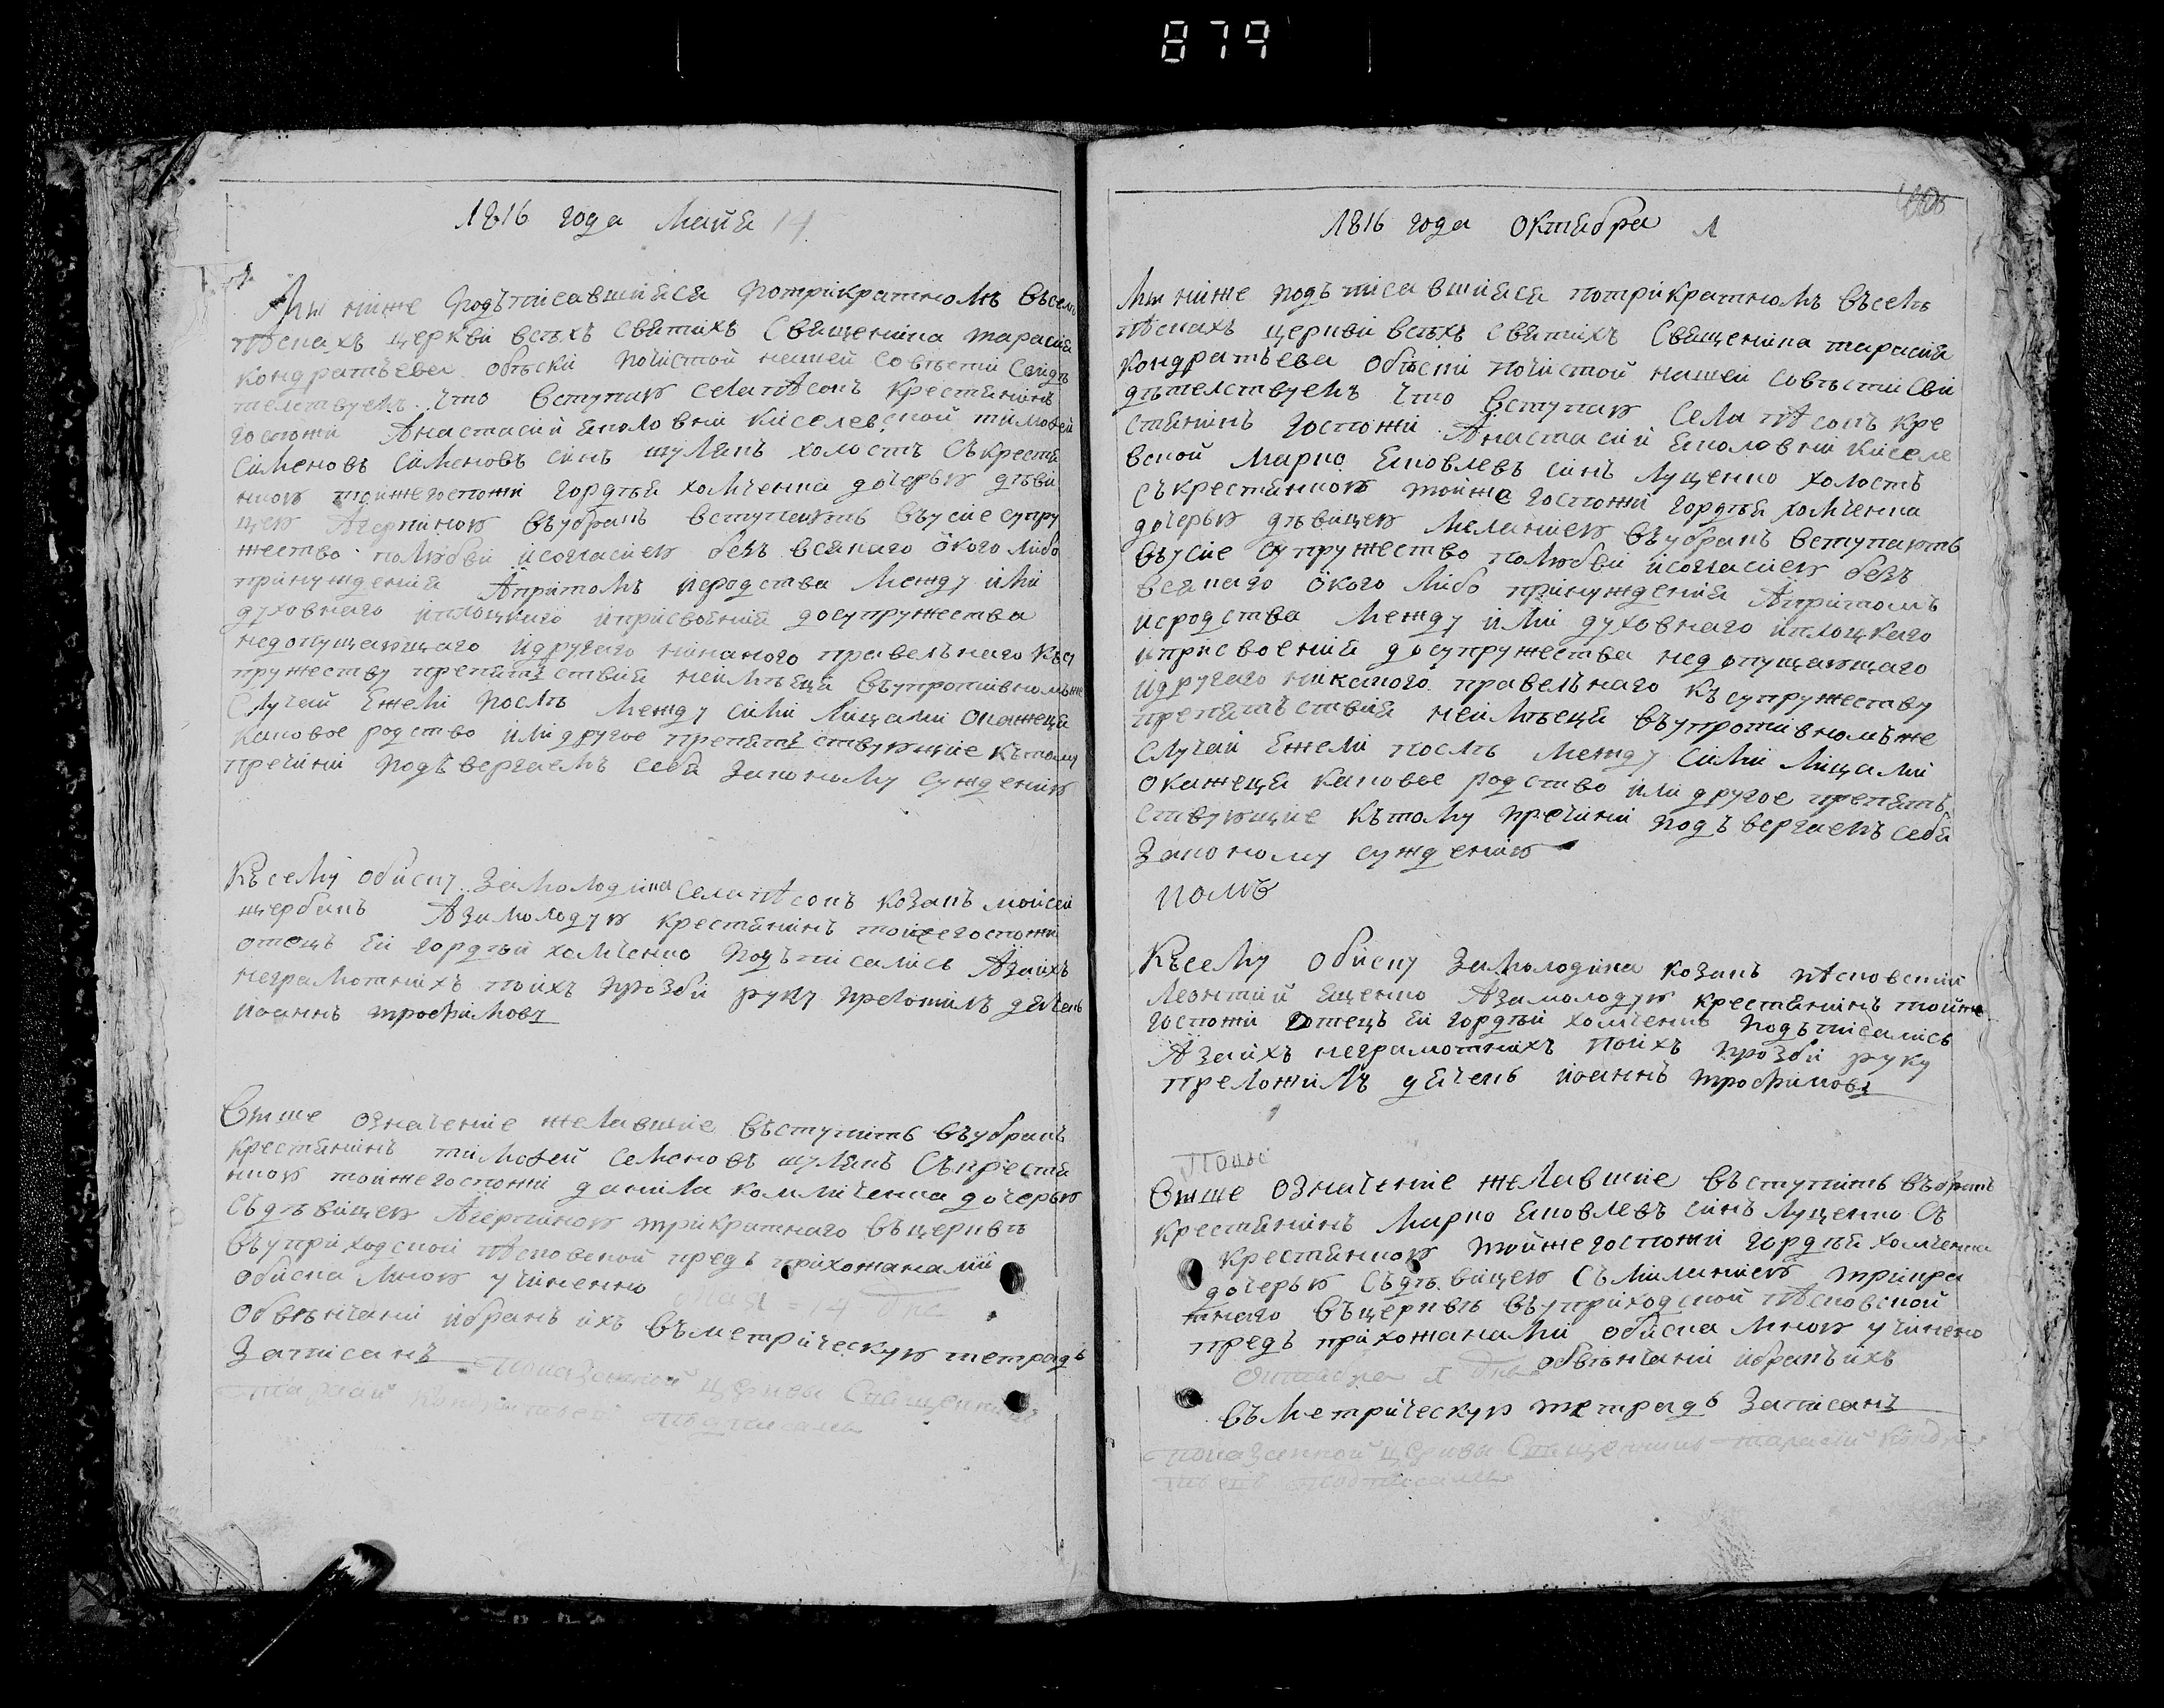 879
1816 года Майя 14
Мы ниже подъписавшияся потрикратномъ въселѣ
пѣскахъ церкви всѣхъ святихъ Священика тарасия
кондратьева обыски почистой нашей совѣсти Свидѣ
телствуемъ что вступаю села пѣсокъ крестянинъ
госпожи Анастасии яковловни киселевской тимофей
Сименовъ Сименовъ синъ шулякъ холостъ Съкрестя
нкою тойжегоспожи гордѣя хомченка дочерью дѣви
цею Агерпиною въубракъ вступають въусие супру
жество полюбви исогласиею безъ всякаго окого либо
принуждения Апритомъ иеродства между ими
духовнаго иплоцкаго иприсвоения досупружества
недопущающаго идругаго никакого правелънаго късу
пружеству препятъствия неимѣеця въупротивномъже
Случаи Ежели послѣ между сими лицами окажеця
каковое родство или другое препятъствующие кътому
пречини подъвергаемъ себя законому суждению
Късему обиску замолодика села пѣсокъ козакъ мойсей
щербакъ Азамолодую крестянинъ тойжегоспожи
отецъ ея гордѣй хомченко подъписались Азаихъ
неграмотнихъ поихъ прозби руку преложилъ дячекъ
иоаннъ трофимовъ
Више означение желавшие въступить въубракъ
крестянинъ тимофей семеновъ шулякъ Съкрестя
нкою тойжегоспожи данила комличенка дочерью
Съдѣвицею Агерпиною трикратнаго въцерквѣ
въуприходской пѣсковской предъ прихожанами
обиска мною учиненно мая 14 дня
обвѣнчани ибракъ ихъ въметрическую тетрадь
Записанъ показанной церкви Священникъ
тарасий Кондратьевъ подписалъ
1816 года Октября 1
Мы ниже подъписавшияся потрикратномъ въселѣ
пѣскахъ церкви всѣхъ святихъ Священика тарасия
кондратъева обыски почистой нашей совѣсти сви
дѣтелствуемъ что вступаю села пѣсокъ кре
стянинъ госпожи Анастасии яколовни киселе
вской Марко яковлевъ синъ луценко холостъ
съкрестянкою тойже госпожи гордѣя хомченка
дочерью дѣвицею меланиею въубракъ вступають
въусие супружество полюбви исогласиею безъ
всякаго окого либо принуждения Апритомъ
иеродства между ими духовнаго иплоцкаго
иприсвоения досупружества недопущающаго
идругаго никакого правелънаго късупружеству
препятъствия неимѣеця въупротивномъже
случаи Ежели послѣ между сими лицами
окажеця каковое родство или другое препятъ
ствующие кътому пречини подъвергаемъ себя
Законому суждению
Късему обиску замолодика козакъ пѣсковский
леонтий ященко Азамолодую крестянинъ тойже
госпожи отецъ ея гордѣй хомченко подъписались
Азаихъ неграмотнихъ поихъ прозби руку
преложилъ дячекъ иоаннъ трофимовъ
Више означение желавшие въступить въбракъ
крестянинъ Марко яковлевъ синъ луценко Съ
крестянкою тойжегоспожи гордѣя хомченка
дочерью съдѣвицею Съмиланиею трикра
тнаго въцерквѣ въуприходской пѣсковской
предъ прихожанами обиска мною учинено
октября 1 дня обвѣнчани ибракъ ихъ
въметрическую тетрадь записанъ
показанной церкви Священникъ тарасий Кондра
тьевъ подписалъ